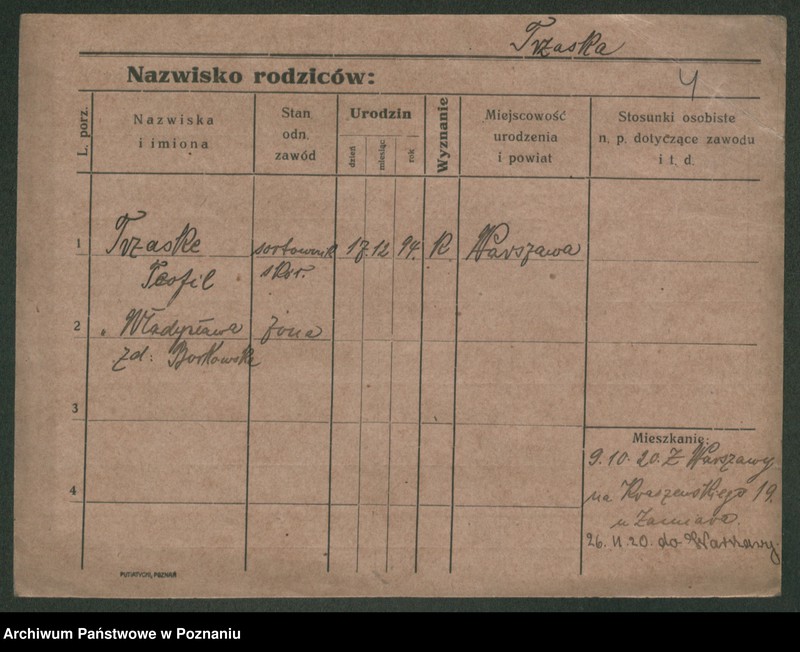 Trzaska
Nazwisko rodziców:
4
L. porz.
Nazwiska
i imiona
Stan
odn.
zawód
Urodzin
dzień
miesiąc
rok
Wyznanie
Miejscowość
urodzenia
i powiat
Stosunki osobiste
n. p. dotyczące zawodu
i t. d.
1 Trzaske sortownik 17. 12 94. K. Warszawa
Teofil skór.
2 " Władysława żona
zd: Borkowska
3
Mieszkanie:
9.10.20. Z Warszawy
4
na Kraszewskiego 19.
u
26.11.20. do Warszawy.
PUTIATYCKI, POZNAŃ
Archiwum Państwowe w Poznaniu